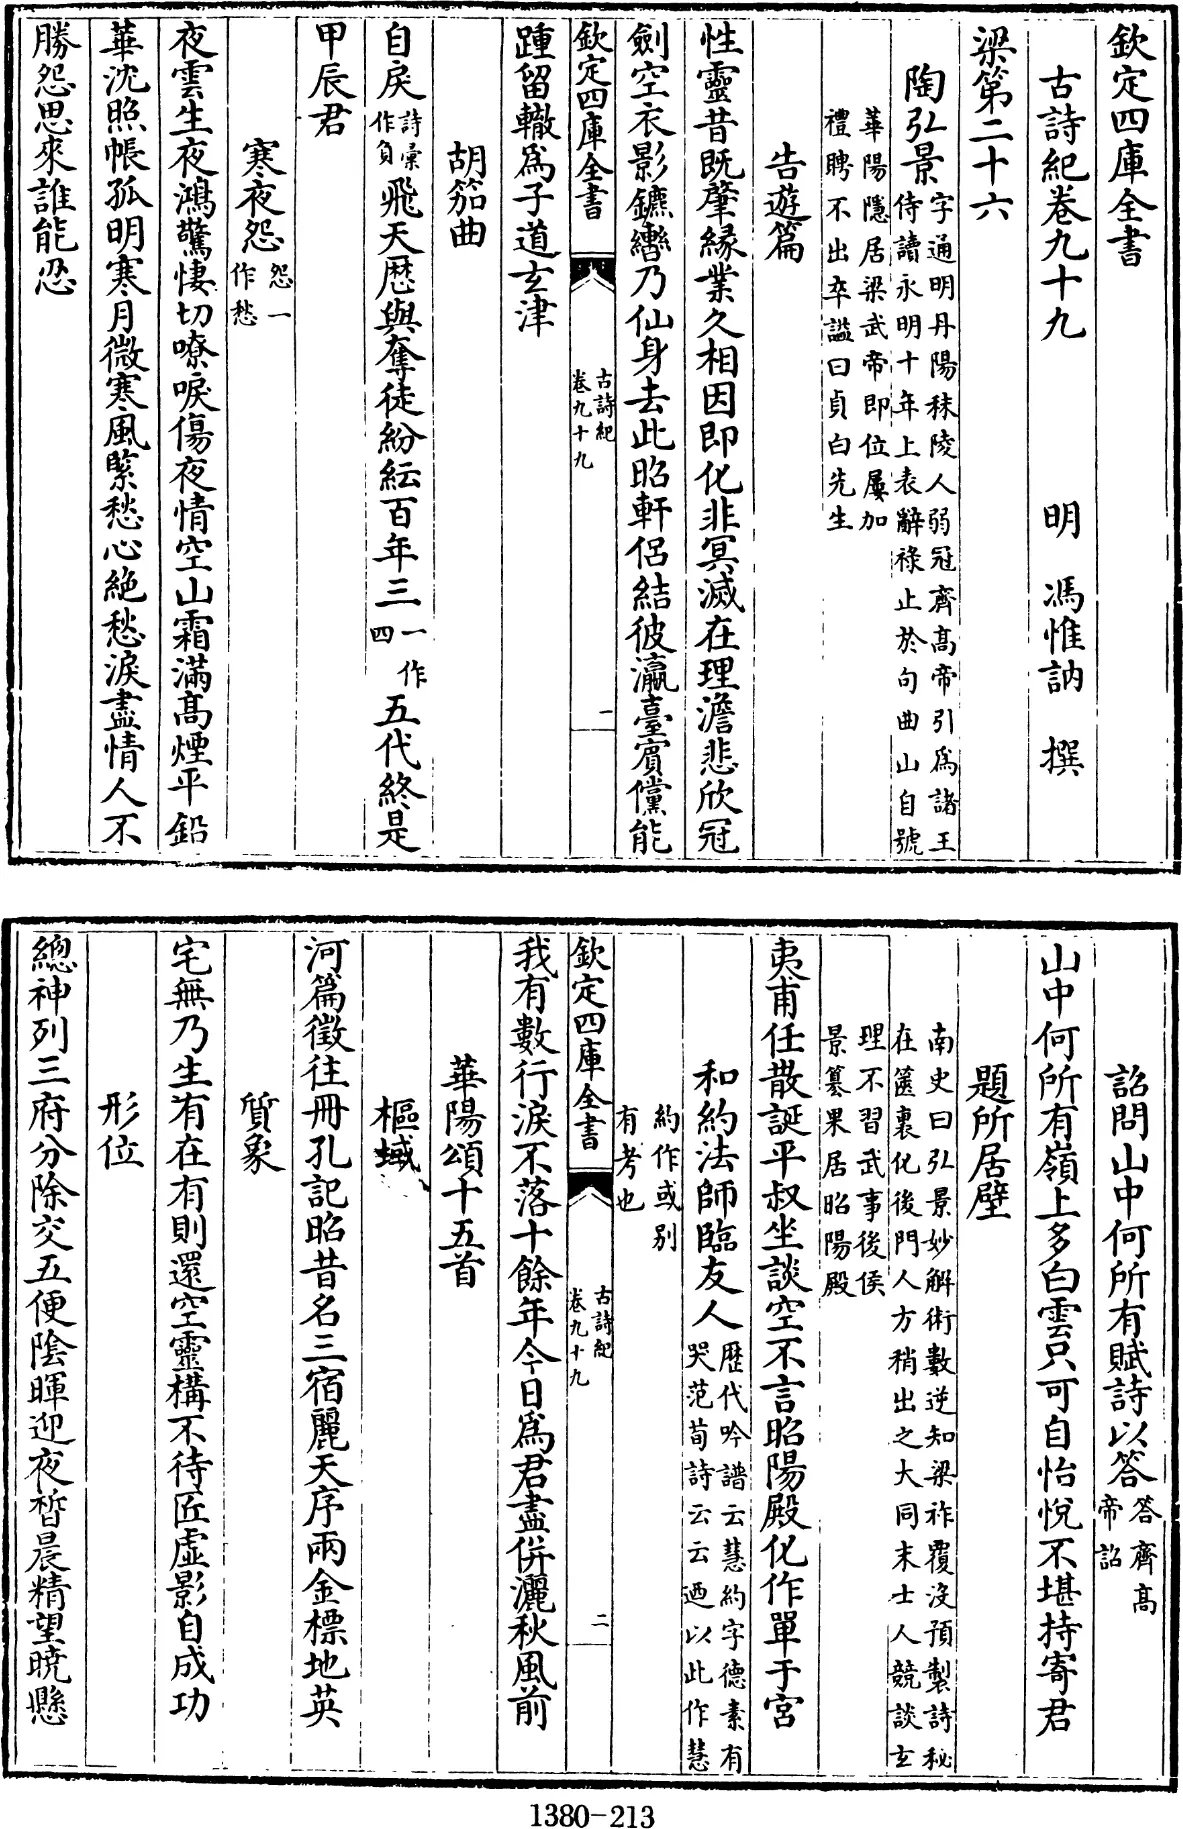 欽定四庫全書
古詩紀卷九十九　　　明　馮惟訥　撰
梁第二十六
陶弘景字通明丹陽秣陵人弱冠齊髙帝引爲諸王
侍讀永明十年上表辭祿止於句曲山自號
華陽隱居梁武帝即位屢加
禮聘不出卒諡曰貞白先生
告遊篇
性靈昔既肇緣業久相因即化非冥滅在理澹悲欣冠
劍空衣影鑣轡乃仙身去此昭軒侶結彼瀛臺賓儻能
欽定四庫全書
古詩紀
卷九十九
一
踵留轍爲子道玄津
胡笳曲
自戾詩彙作負飛天厯與奪徒紛紜百年三一作四五代終是
甲辰君
寒夜怨怨一作愁
夜雲生夜鴻驚悽切嘹唳傷夜情空山霜滿髙煙平鉛
華沈照帳孤明寒月微寒風緊愁心絶愁淚盡情人不
勝怨思來誰能忍
詔問山中何所有賦詩以答答齊髙帝詔
山中何所有嶺上多白雲只可自怡悅不堪持寄君
題所居壁
南史曰弘景妙解術數逆知梁祚覆没預製詩秘
在篋裏化後門人方稍出之大同末士人競談玄
理不習武事後侯
景篡果居昭陽殿
夷甫任散誕平叔坐談空不言昭陽殿化作單于宮
和約法師臨友人歴代吟譜云慧約字德素有
哭范荀詩云云迺以此作慧
約作或别
有考也
欽定四庫全書
古詩紀
卷九十九
二
我有數行淚不落十餘年今日爲君盡併灑秋風前
華陽頌十五首
樞域
河篇徵往冊孔記昭昔名三宿麗天序兩金標地英
質象
宅無乃生有在有則還空靈構不待匠虛影自成功
形位
總神列三府分除交五便陰暉迎夜晳晨精望曉懸
1380-213